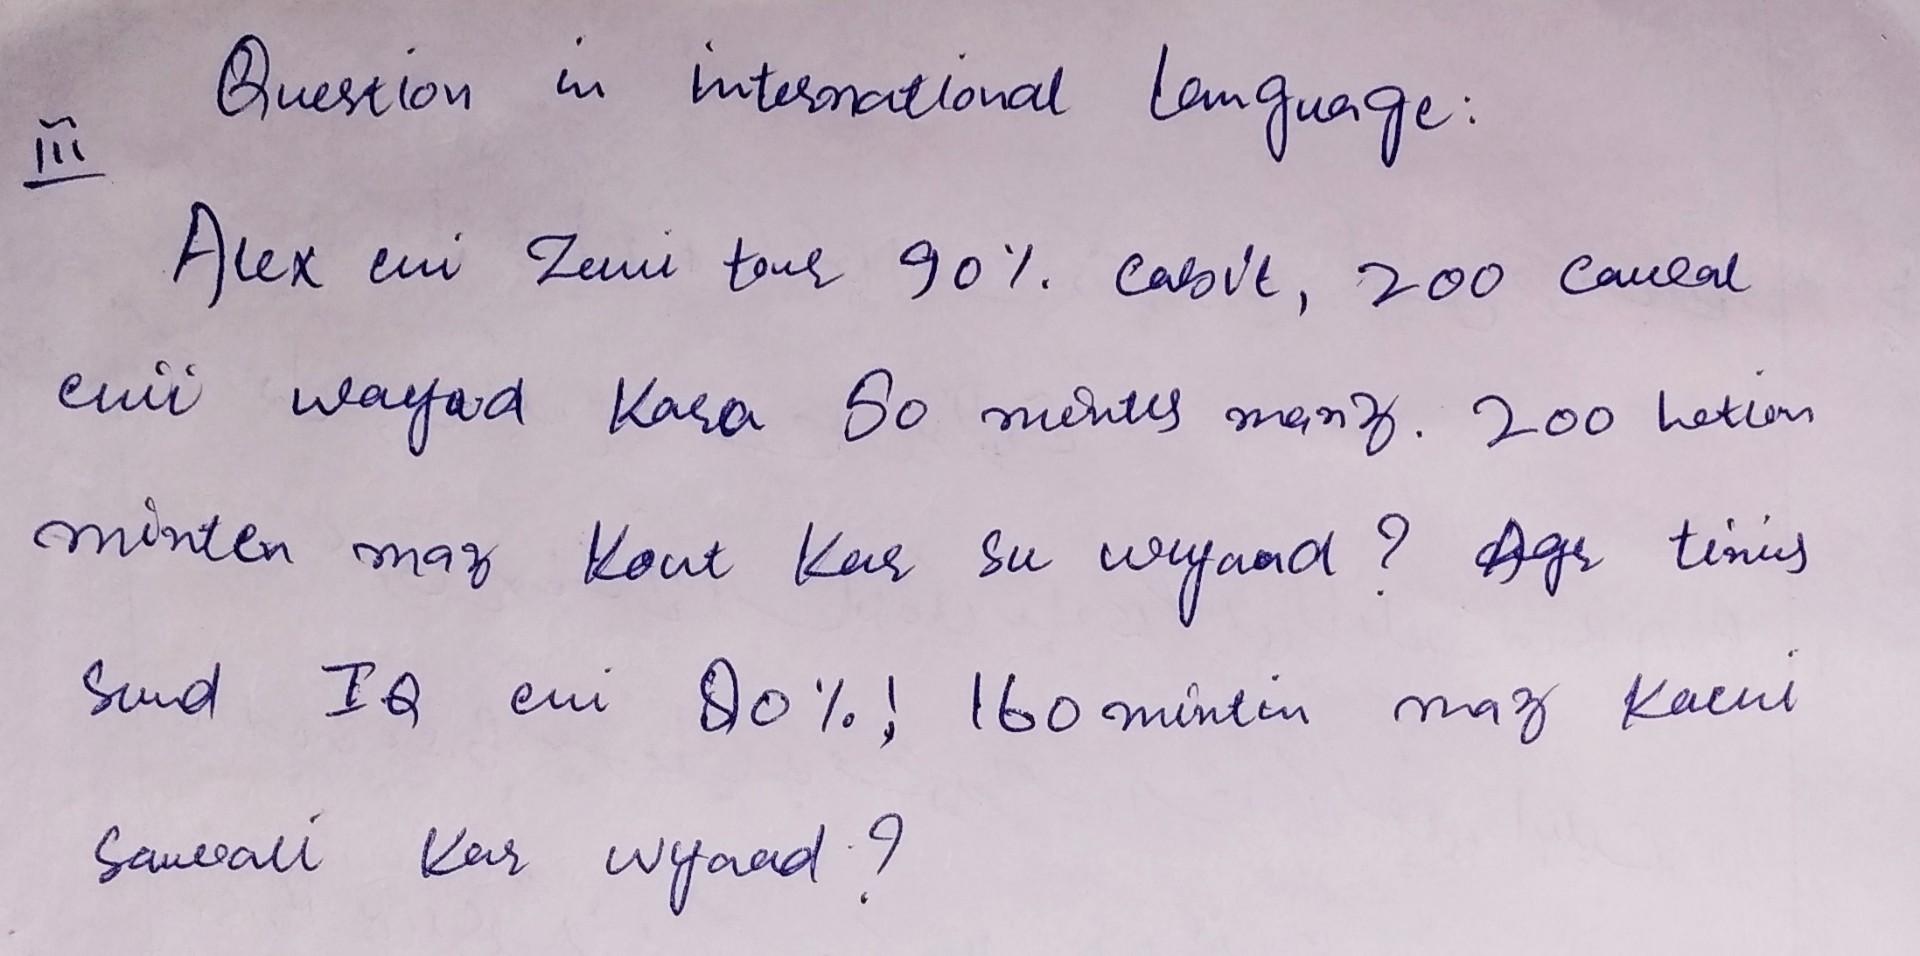 Question in international Language:
iii
Alex cui Zeni tous 90%. Casvt, 200 Caueal
cuii wayad Kara 50 mintes manz. 200 hetien
minten maz Kout Kar su wyaad? Agr tinis
Sund IQ cui 80%! 160 mintin maz Kaeui
Saweali Kar wyaad?